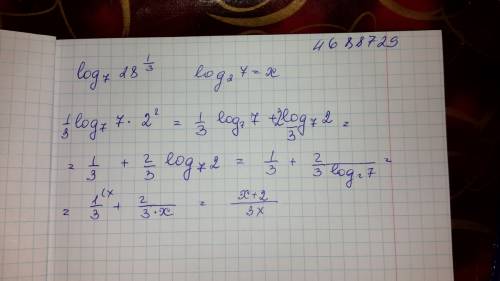 4688729
log₇ 28^(1/3)   log₂ 7 = x
1/3 log₇ 7 · 2² = 1/3 log₇ 7 + 2/3 log₇ 2 =
= 1/3 + 2/3 log₇ 2 = 1/3 + 2/(3 log₂ 7) =
= 1/3 ⁽ˣ + 2/(3·x) = (x+2)/(3x)